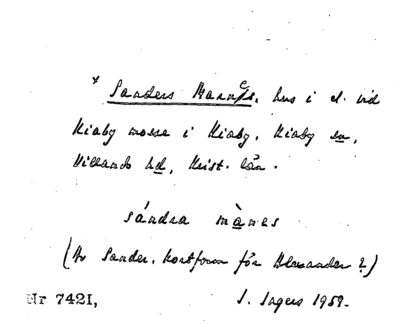 * Sanders Hannes, hus i el. vid
Kiaby mosse i Kiaby, Kiaby sn,
Villands hd, Krist. län.
sándra
(Av Sander, kortform för Alexander?)
Nr 7421, J. Sagers 1959.